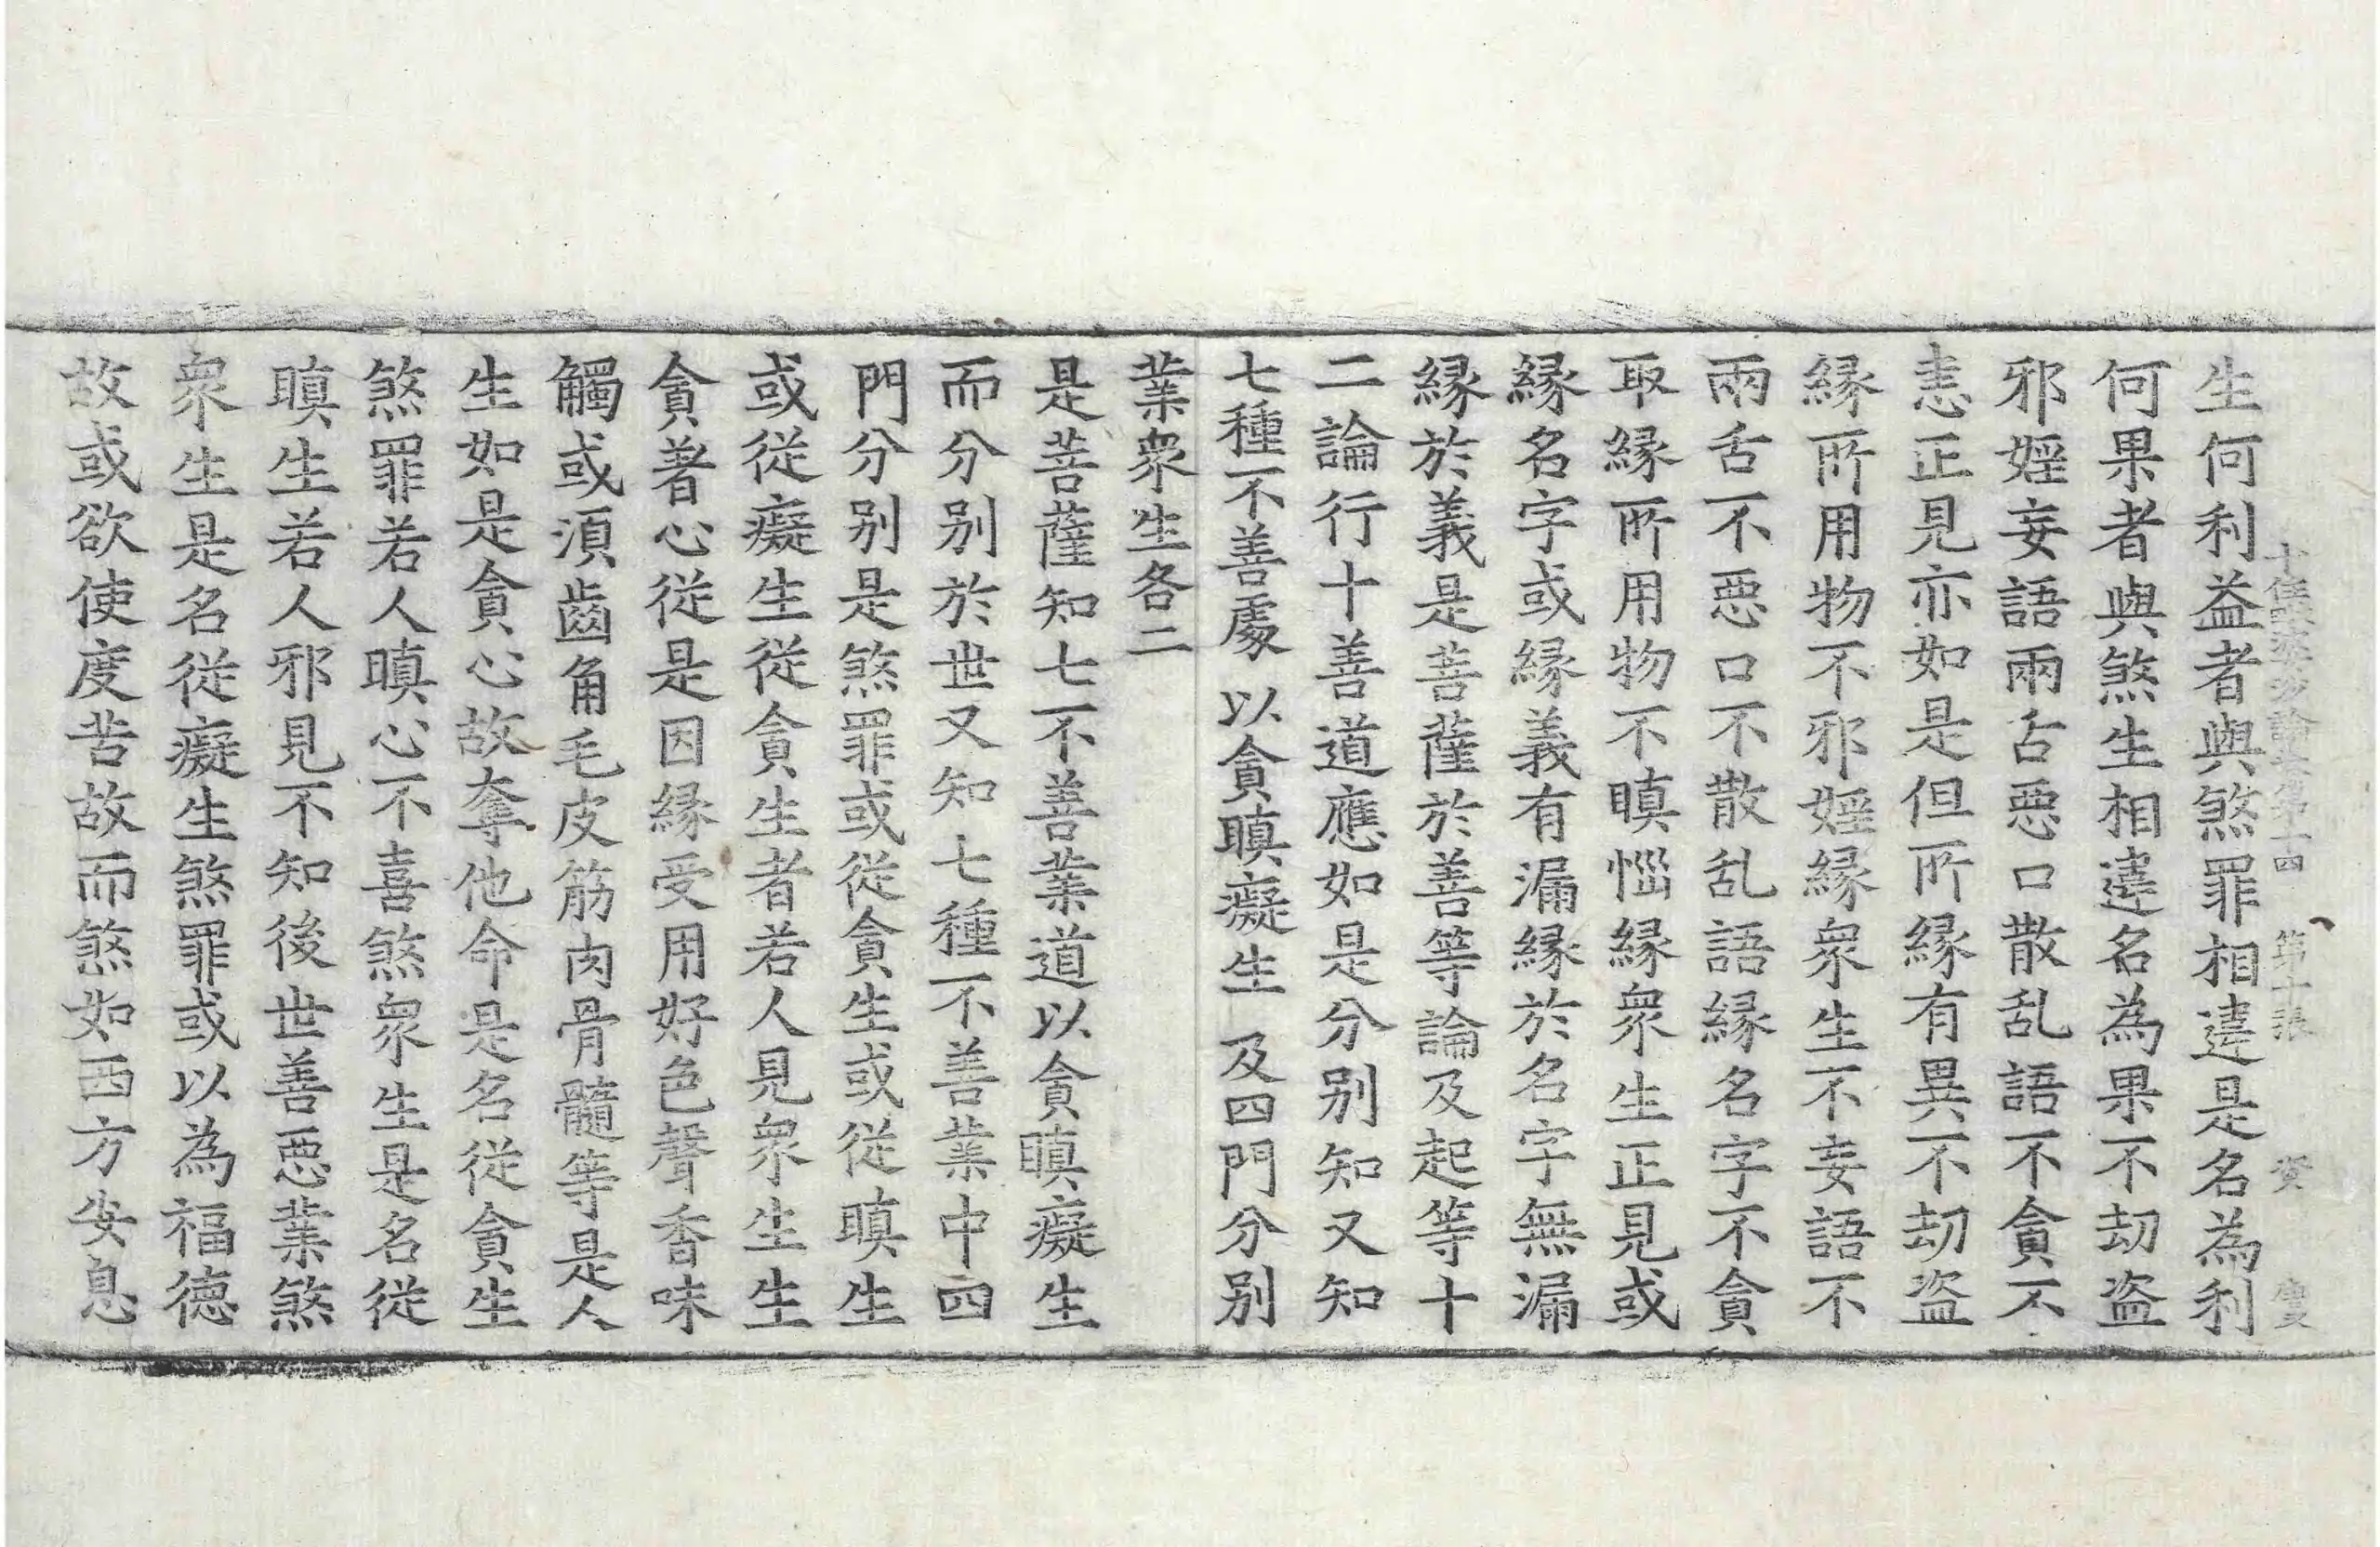 十住毗婆沙論卷第十四 第十張 賢
生何利益者與煞罪相違是名為利
何果者與煞生相違名為果不劫盜
邪婬妄語兩舌惡口散乱語不貪不
恚正見亦如是但所緣有異不劫盜
緣所用物不邪婬緣衆生不妄語不
兩舌不惡口不散乱語緣名字不貪
取緣所用物不瞋惱緣衆生正見或
緣名字或緣義有漏緣於名字無漏
緣於義是菩薩於善等論及起等十
二論行十善道應如是分別知又知
七種不善處 以貪瞋癡生 及四門分別
業衆生各二
是菩薩知七不善業道以貪瞋癡生
而分別於世又知七種不善業中四
門分別是煞罪或從貪生或從瞋生
或從癡生從貪生者若人見衆生生
貪著心從是因緣受用好色聲香味
觸或須齒角毛皮筋肉骨髓等是人
生如是貪心故奪他命是名從貪生
煞罪若人瞋心不喜煞衆生是名從
瞋生若人邪見不知後世善惡業煞
衆生是名從癡生煞罪或以為福德
故或欲使度苦故而煞如西方安息